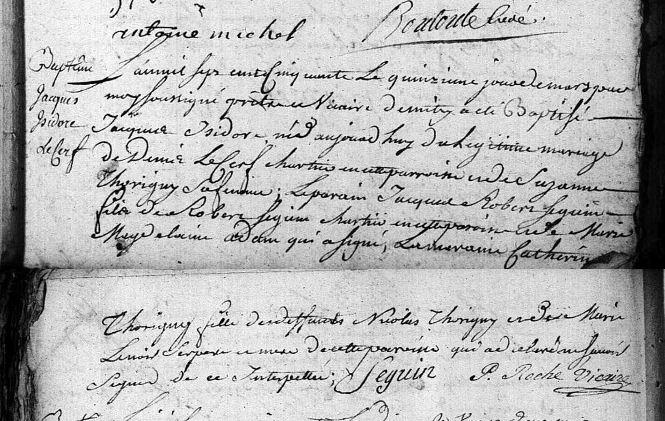 antoine michel Bondoute Curé.
Baptême L'an mil sept cent Cinquante Le quinzieme jour de mars par
Jacques moy soussigné prêtre et Vicaire De mitry a été Baptisé
Isidore Jacques Isidore né d'aujourd'huy du Legitime mariage
Le Cerf de Denis Le Cerf chartier en cette parroisse et de Suzanne
Thorigny Sa femme; Le parain Jacques Robert Seguin
fils de Robert Seguin chartier en cette paroisse et de Marie
Magdelaine adam qui a signé, La maraine Catherine
Thorigny fille des deffunts Nicolas Thorigny et de Marie
Lenoir Ses pere et mere de cette paroisse qui a declaré ne sçavoir
Signer de ce Interpellée; Seguin P. Roche Vicaire